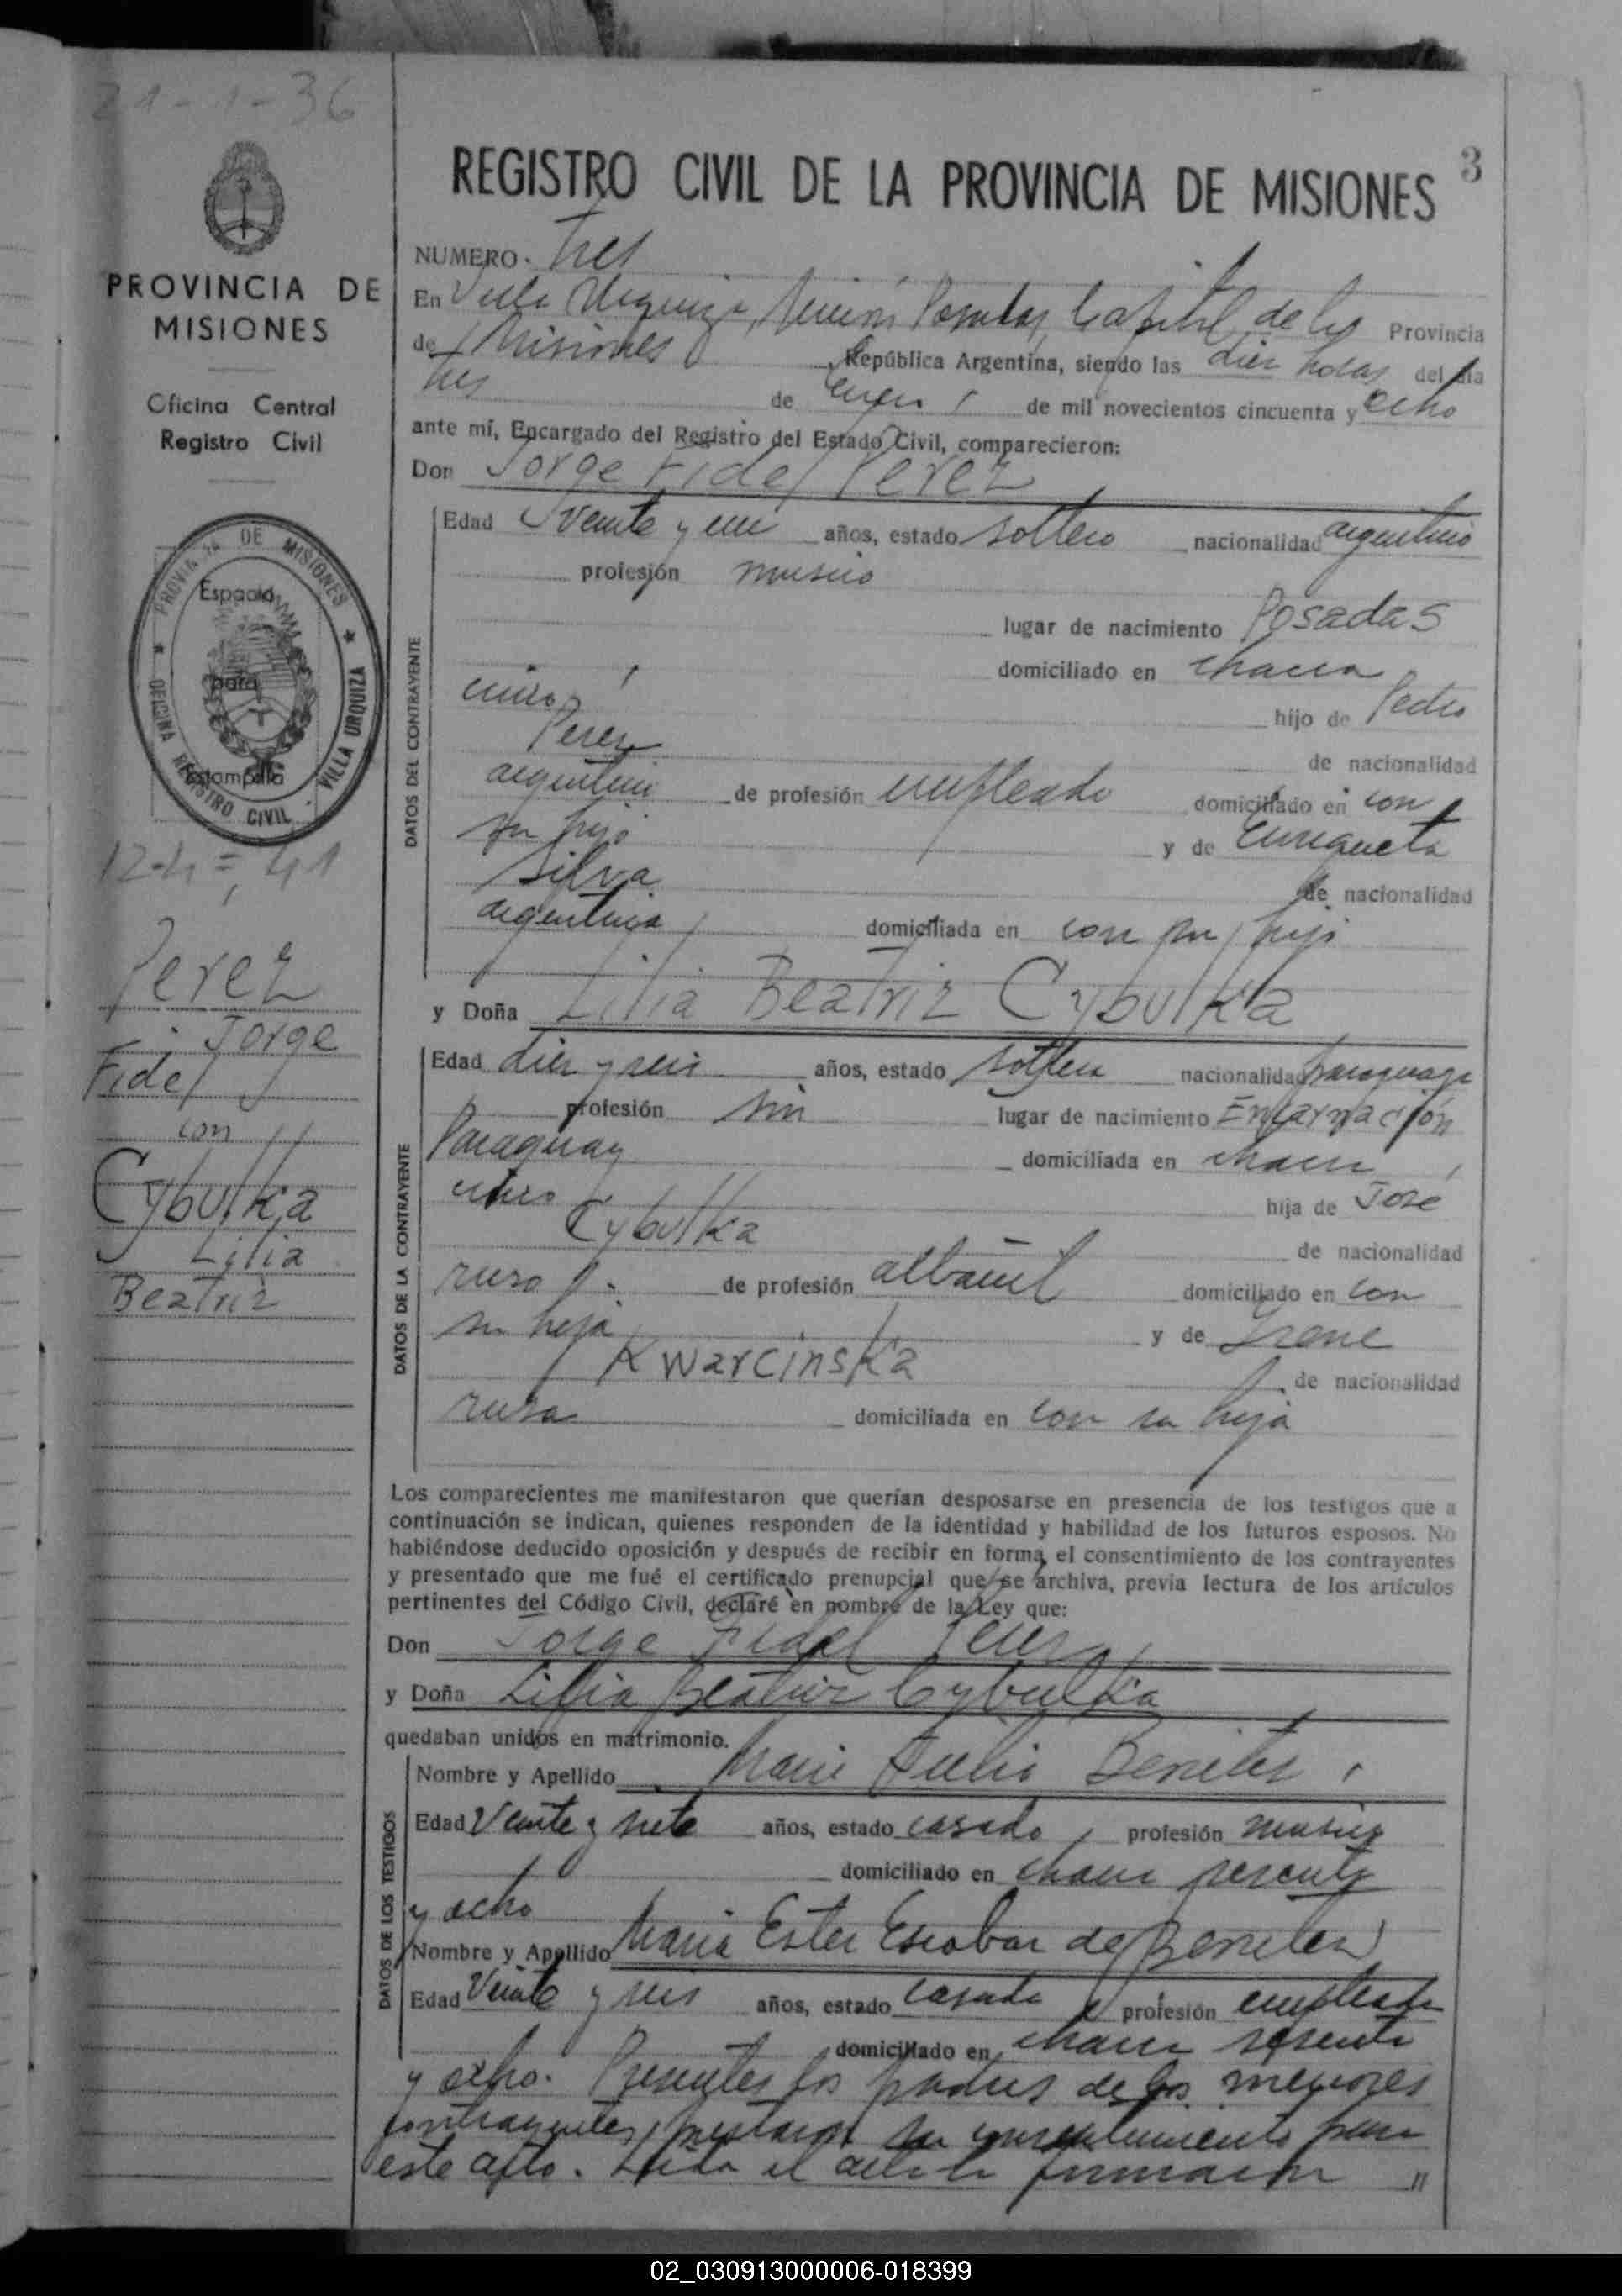 21-1-36
3
PROVINCIA DE
MISIONES
Oficina Central
Registro Civil
PROVINCIA DE MISIONES
Espacio
para
Estampilla
OFICINA REGISTRO CIVIL - VILLA URQUIZA
Perez
Jorge
Fidel
con
Cybulka
Lilia
Beatriz
REGISTRO CIVIL DE LA PROVINCIA DE MISIONES
NUMERO. Tres
En Villa Urquiza, Posadas, Capital de la Provincia
de Misiones República Argentina, siendo las diez horas del día
tres de Enero de mil novecientos cincuenta y ocho
ante mí, Encargado del Registro del Estado Civil, comparecieron:
Don Jorge Fidel Perez
DATOS DEL CONTRAYENTE
Edad veinte y un años, estado soltero nacionalidad argentino
profesión musico
lugar de nacimiento Posadas
domiciliado en chacra
cinco, hijo de Pedro
Perez de nacionalidad
argentino de profesión empleado domiciliado en con
su hijo y de Enriqueta
Silva de nacionalidad
argentina domiciliada en con su hijo
y Doña Lilia Beatriz Cybulka
DATOS DE LA CONTRAYENTE
Edad diez y seis años, estado soltera nacionalidad paraguaya
profesión sin lugar de nacimiento Encarnación
Paraguay domiciliada en chacra
cinco hija de José
Cybulka de nacionalidad
ruso de profesión albañil domiciliado en con
su hija y de Irene
Kwarcinska de nacionalidad
rusa domiciliada en con su hija
Los comparecientes me manifestaron que querían desposarse en presencia de los testigos que a
continuación se indican, quienes responden de la identidad y habilidad de los futuros esposos. No
habiéndose deducido oposición y después de recibir en forma el consentimiento de los contrayentes
y presentado que me fué el certificado prenupcial que se archiva, previa lectura de los artículos
pertinentes del Código Civil, declaré en nombre de la Ley que:
Don Jorge Fidel Perez
y Doña Lilia Beatriz Cybulka
quedaban unidos en matrimonio.
DATOS DE LOS TESTIGOS
Nombre y Apellido Julio Benitez
Edad Veinte y siete años, estado casado, profesión musico
domiciliado en chacra sesenta
y ocho
Nombre y Apellido Maria Ester Escobar de Benitez
Edad Veinte y seis años, estado casada profesión empleada
domiciliado en chacra sesenta
y ocho. Presentes los padres de los menores
contrayentes, prestaron su consentimiento para
este acto. Leida el acta la firmaron "
02_030913000006-018399